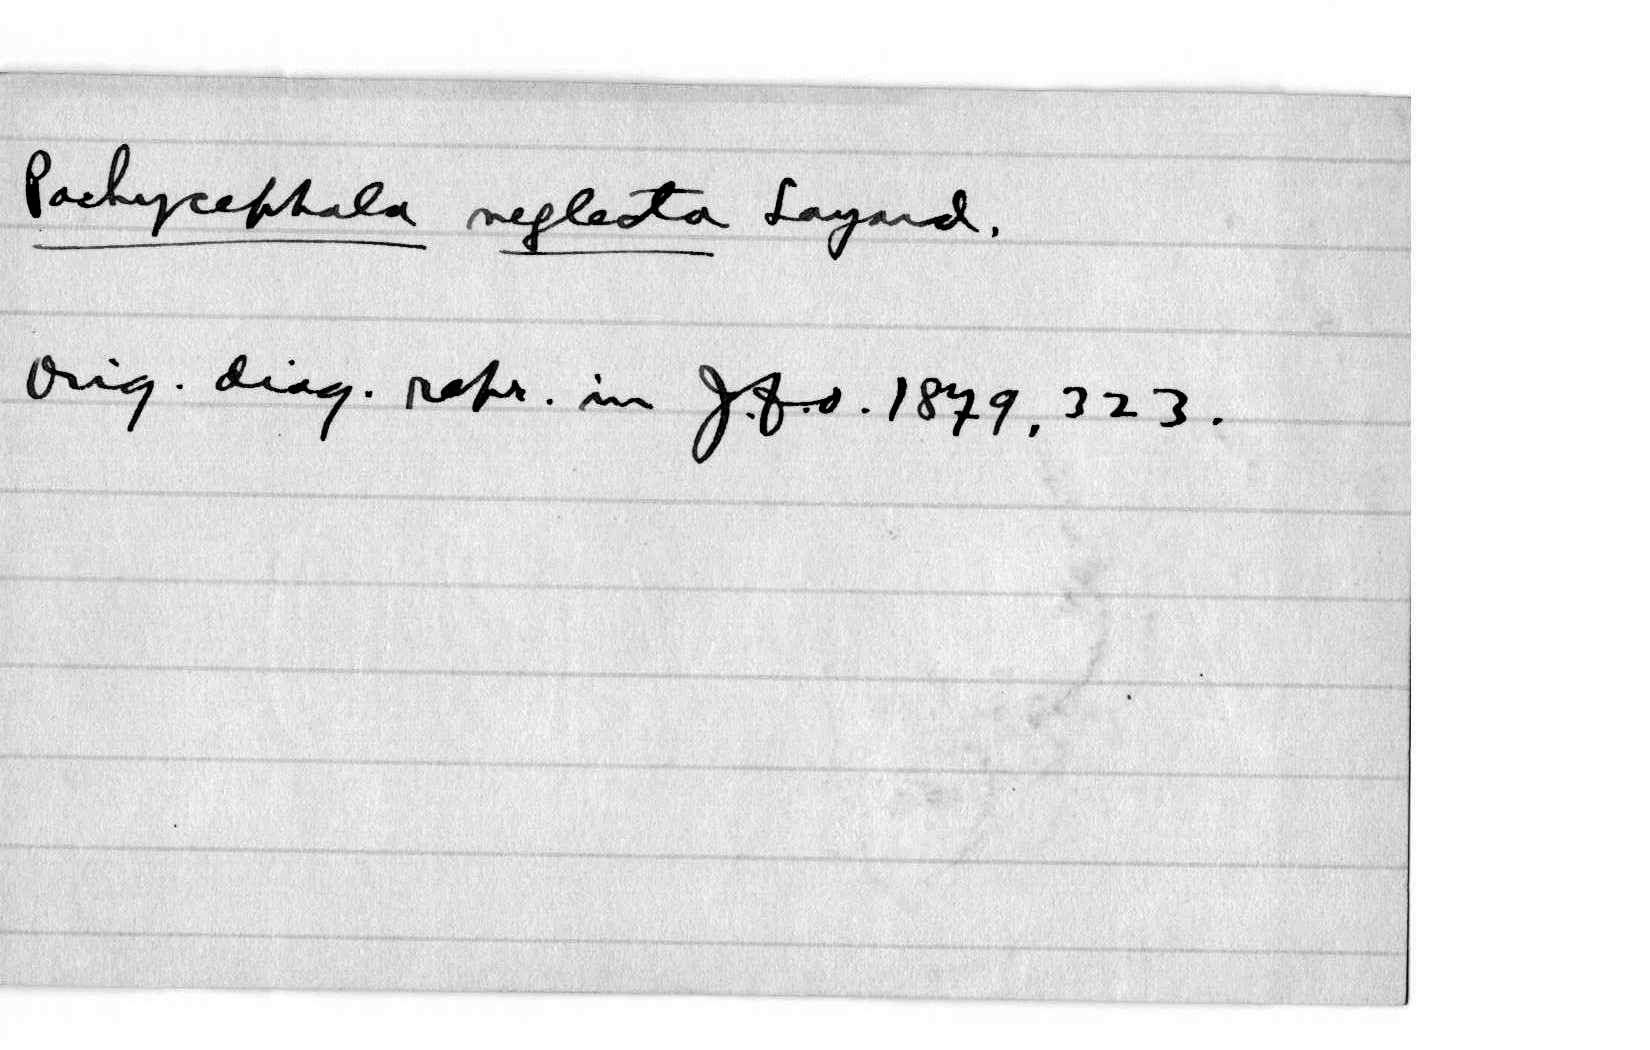 Pachycephala neglecta Layard.
Orig. diag. repr. in J.f.O. 1879, 323.